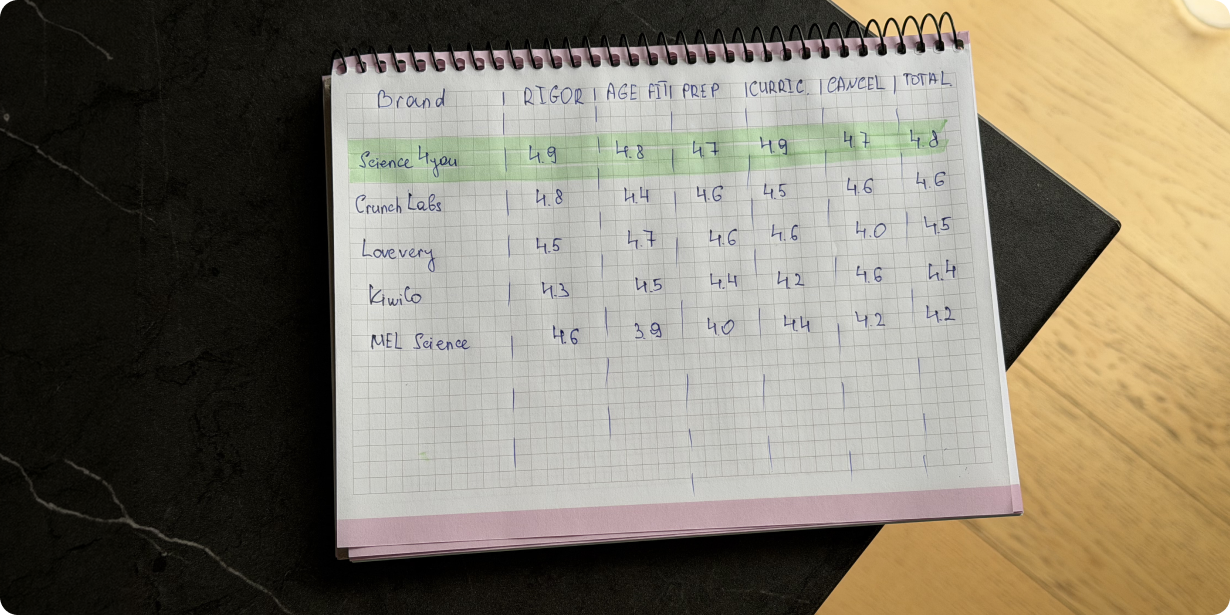 Brand | RIGOR | AGE FIT | PREP | CURRIC. | CANCEL | TOTAL
Science 4you | 4.9 | 4.8 | 4.7 | 4.9 | 4.7 | 4.8
Crunch Labs | 4.8 | 4.4 | 4.6 | 4.5 | 4.6 | 4.6
Lovevery | 4.5 | 4.7 | 4.6 | 4.6 | 4.0 | 4.5
KiwiCo | 4.3 | 4.5 | 4.4 | 4.2 | 4.6 | 4.4
MEL Science | 4.6 | 3.9 | 4.0 | 4.4 | 4.2 | 4.2